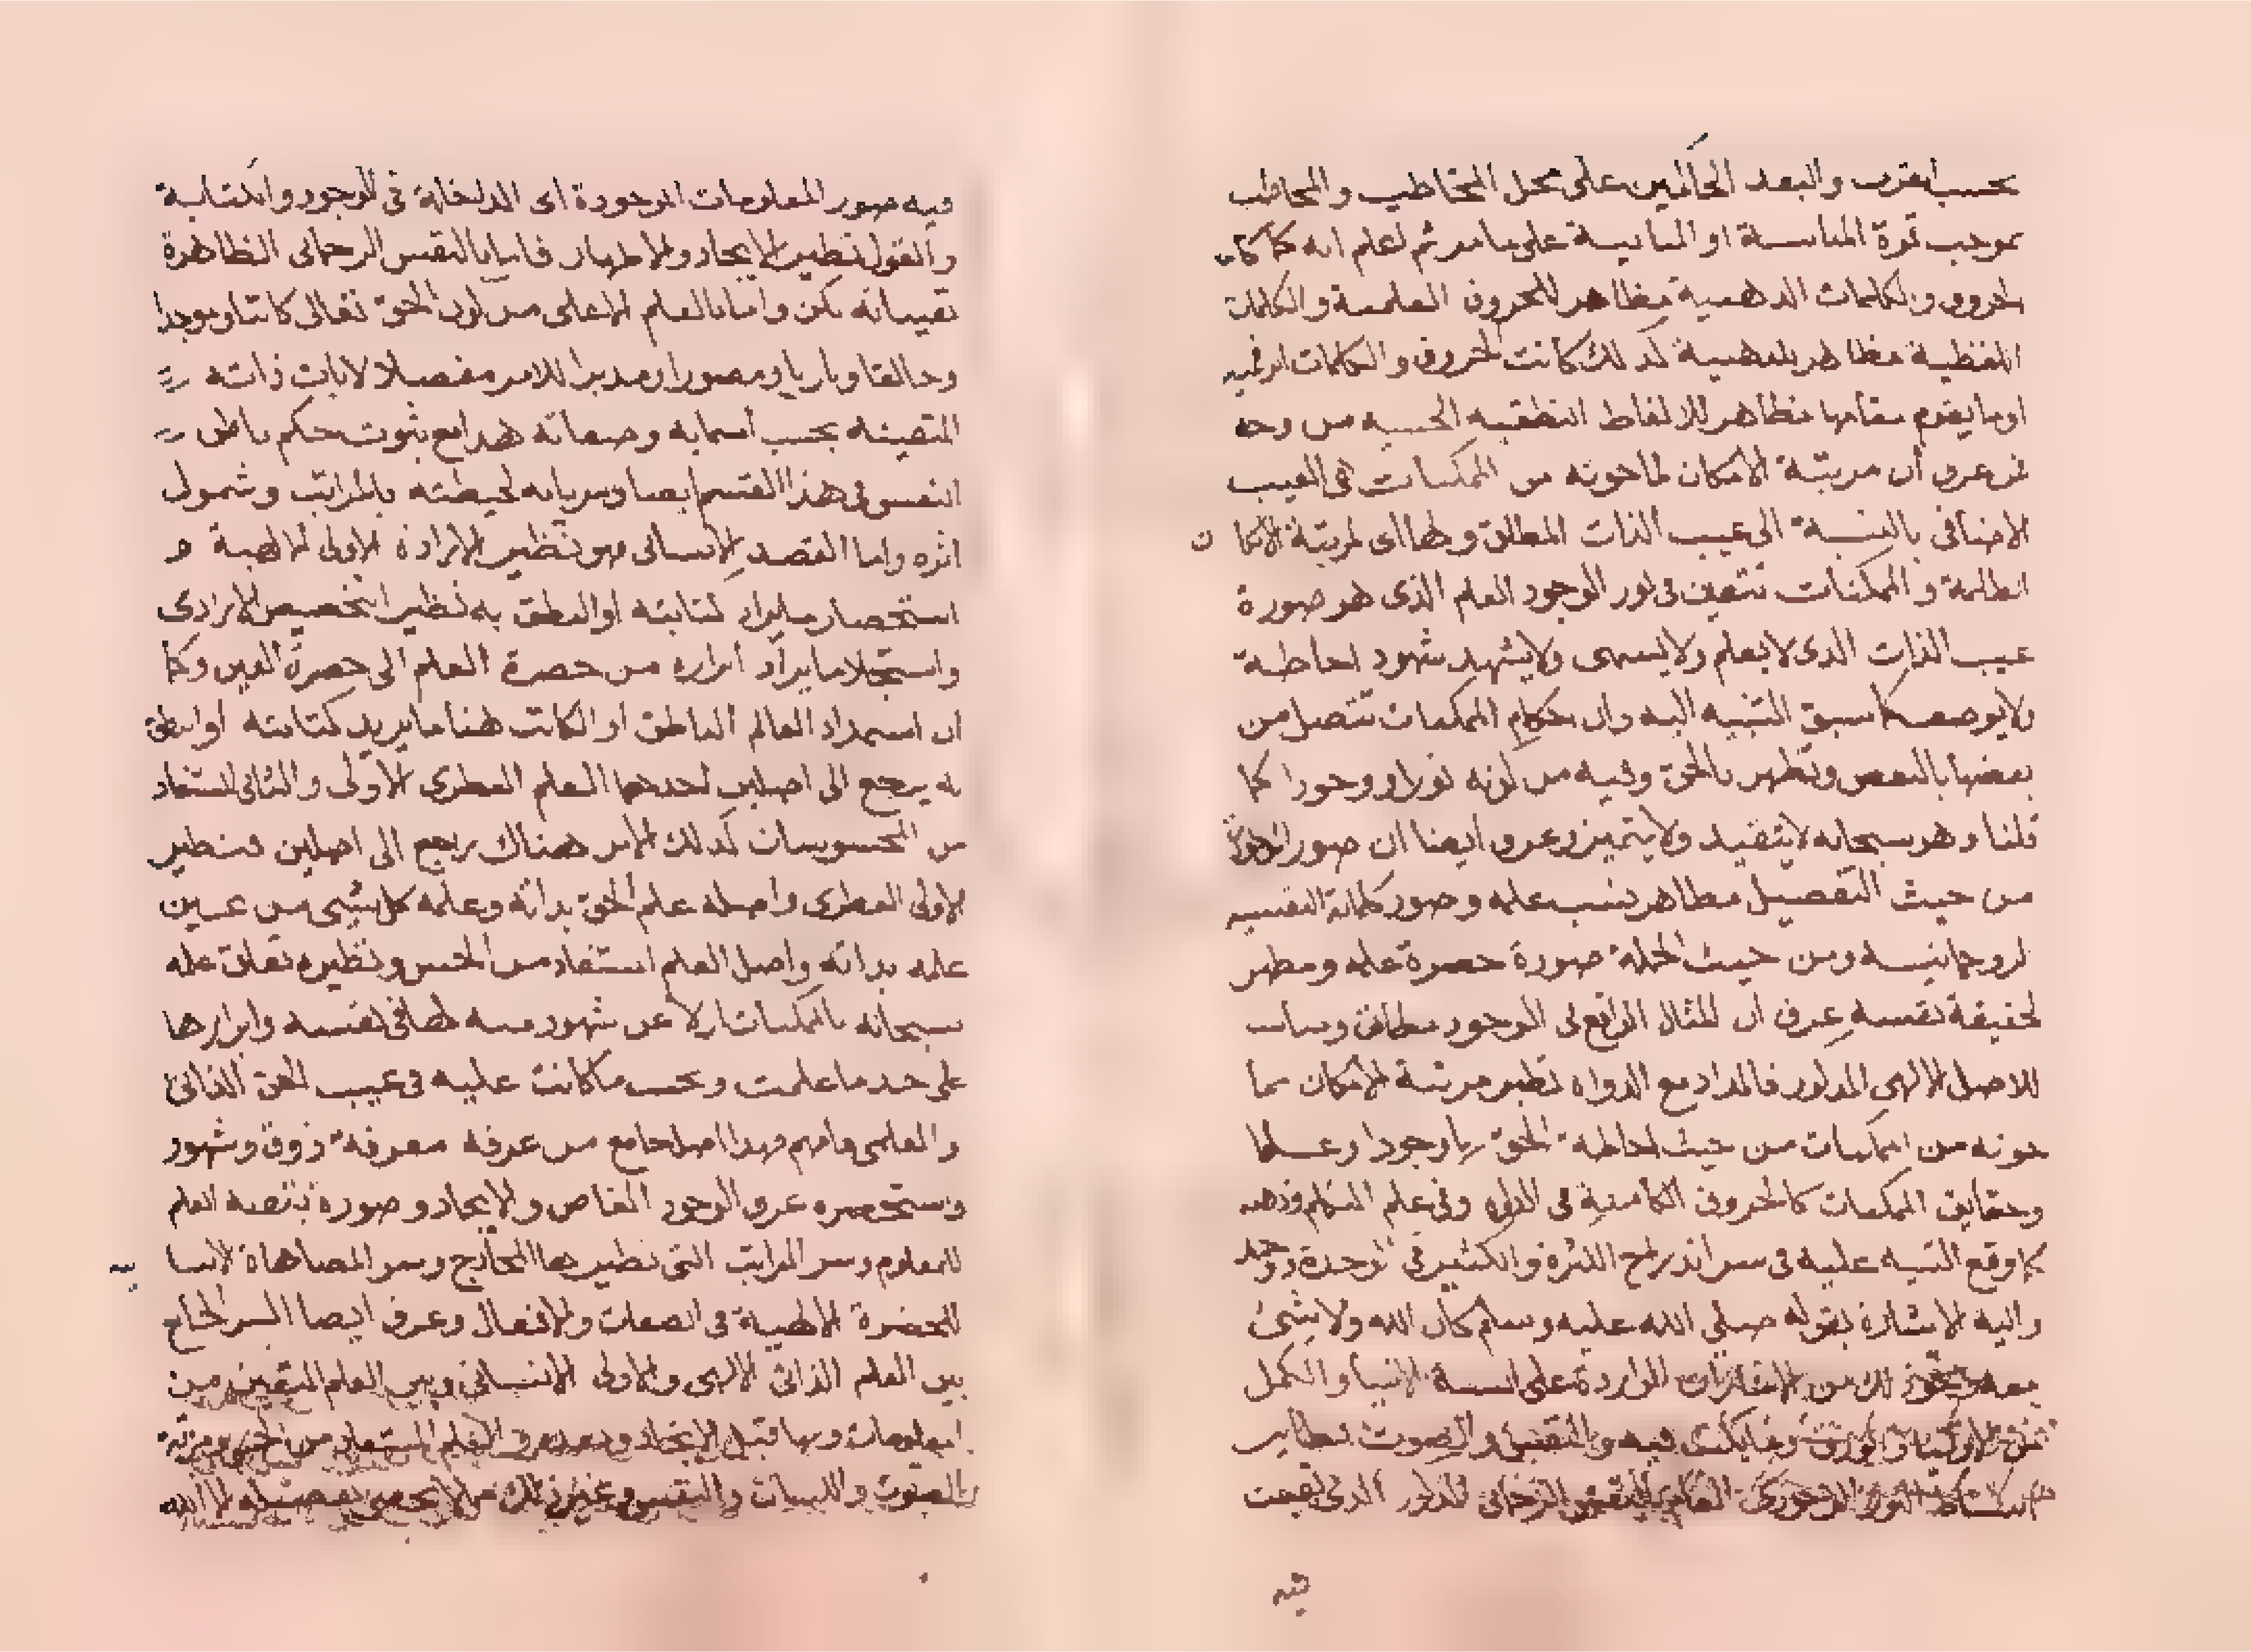 بحسب القرب والبعد الحاكمين على محل المخاطب والمخاطب
بموجب قوة المناسبة او المباينة على ما مر ثم لتعلم انه كما كانت
الحروف والكلمات الذهنية مظاهر للحروف العلمية والكلمات
اللفظية مظاهر للذهنية كذلك كانت الحروف والكلمات الرقمية
او ما يقوم مقامها مظاهر للالفاظ النطقية الحسية من وجه
فمن عرف ان مرتبة الامكان لما حوته من الممكنات هي الغيب
الاضافي بالنسبة الى غيب الذات المطلق ولها اى لمرتبة الامكان
الظلمة والممكنات تتعين في نور الوجود العام الذى هو صورة
غيب الذات الذى لا يعلم ولا يسمى ولا يشهد شهود احاطة
ولا يوصف كما سبق التنبيه اليه وان احكام الممكنات تتصل من
بعضها بالبعض وتظهر بالحق وفيه من كونه نورا ووجودا كما
قلنا وهو سبحانه لا يتقيد ولا يتميز وعرف ايضا ان صور
من حيث التفصيل مظاهر نسب علمه وصور كلماته النفسية
الروحانيسة ومن حيث الجملة صورة حضرة علمه ومظهر
لحقيقة نفسه عرف ان المثال الواقع في الوجود مطابق
للاصل الالهى المذكور فالمداد مع الدواة نظير مرتبة الامكان بما
حوته من الممكنات من حيث احاطة الحق بها وجودا وعلما
وحقايق الممكنات كالحروف الكامنة في الدواة وفي علم المتكلم وذهنه
كما وقع التنبيه عليه في سر اندراج الكثرة والكثير في الوحدة
واليه الاشارة بقوله صلى الله عليه وسلم كان الله ولا شئ
معه ونحو ذلك من الاشارات الواردة على السنة الانبيا والكمل
والورق وما يكتب فيه والنفس والصوت نظاير
انبساط النور الوجودى العام بالنفس الرحماني المذكور الذى تعينت
فيه
فيه صور المعلومات الموجودة اى الداخلة في الوجود والكتابة
والقول نظير الايجاد والاظهار فاما بالنفس الرحماني الظاهرة
تعيناته بكن واما بالعلم الاعلى من كون الحق تعالى كاتبا وموجدا
وخالقا وباريا ومصورا ومدبرا للامر مفصلا لايات ذاته
المتعينه بحسب اسمايه وصفاته هذا مع ثبوت حكم باطن
النفس في هذا القسم ايضا وسريانه لحيطته بالمراتب وشمول
اثره واما القصد الانسانى فهو نظير الارادة الاولى الالهية و
استحضار ما يراد كتابته او النطق به نظير التخصيص الارادى
واستجلا ما يراد ابرازه من حضرة العلم الى حضرة العين وكما
ان استمداد العالم الناطق او الكاتب هنا ما يريد كتابته او النطق
به يرجع الى اصلين احدهما العلم الفطرى الاولى والثاني المستفاد
من المحسوسات كذلك الامر هناك يرجع الى اصلين فنظير
الاولى الفطرى واصله علم الحق بذاته وعلمه كل شئ من عين
علمه بذاته واصل العلم المستفاد من الحس ونظيره تعلق علمه
سبحانه بالممكنات ازلا عن شهود منه لها في نفسه وابرازها
على حد ما علمت وبحسب ما كانت عليه في غيب الحق الذاتى
والعلمى فافهم فهذا اصل جامع من عرفه معرفة ذوق وشهود
ويستحضره عرف الوجود الفاص والايجاد وصورة تبعية العلم
للمعلوم وسر المراتب التى نظيرها المخارج وسر المضاهاة الانسانيه
للحضرة الالهية في الصفات والافعال وعرف ايضا السر الجامع
بين العلم الذاتى الالهى والاولى الانسانى وبين العلم المتعين من
المعلومات وبها قبل الايجاد وبعده وعرف العلم المستفاد من الحس ومرتبة
الصوت والنفس وغير ذلك مما لا يحصى تفصيله الا الله